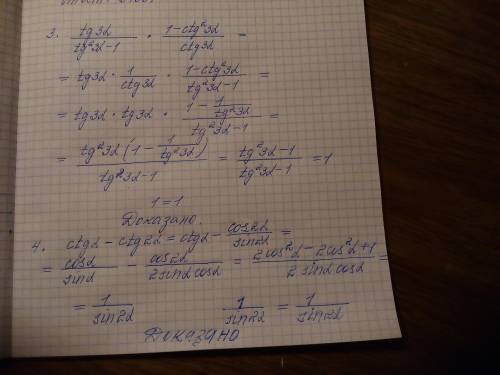 3. tg3α / tg²3α-1 · 1-ctg²3α / ctg3α =
= tg3α · 1 / ctg3α · 1-ctg²3α / tg²3α-1 =
= tg3α · tg3α · 1 - 1/tg²3α / tg²3α-1 =
= tg²3α (1 - 1/tg²3α) / tg²3α-1 = tg²3α-1 / tg²3α-1 = 1
1 = 1
Доказано.
4. ctgα - ctg2α = ctgα - cos2α / sin2α =
= cosα / sinα - cos2α / 2sinα cosα = 2cos²α - 2cos²α+1 / 2 sinα cosα =
= 1 / sin2α 1 / sin2α = 1 / sin2α
Доказано